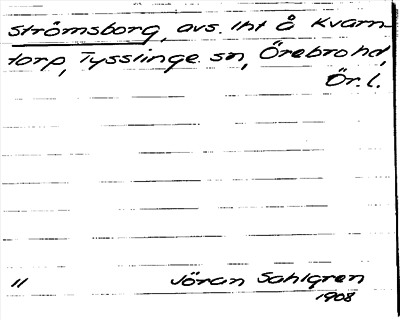 Strömsborg, avs. lht Å Kvarn
torp, Tysslinge sn, Örebro hd,
Ör. l.
11 Jöran Sahlgren
1908